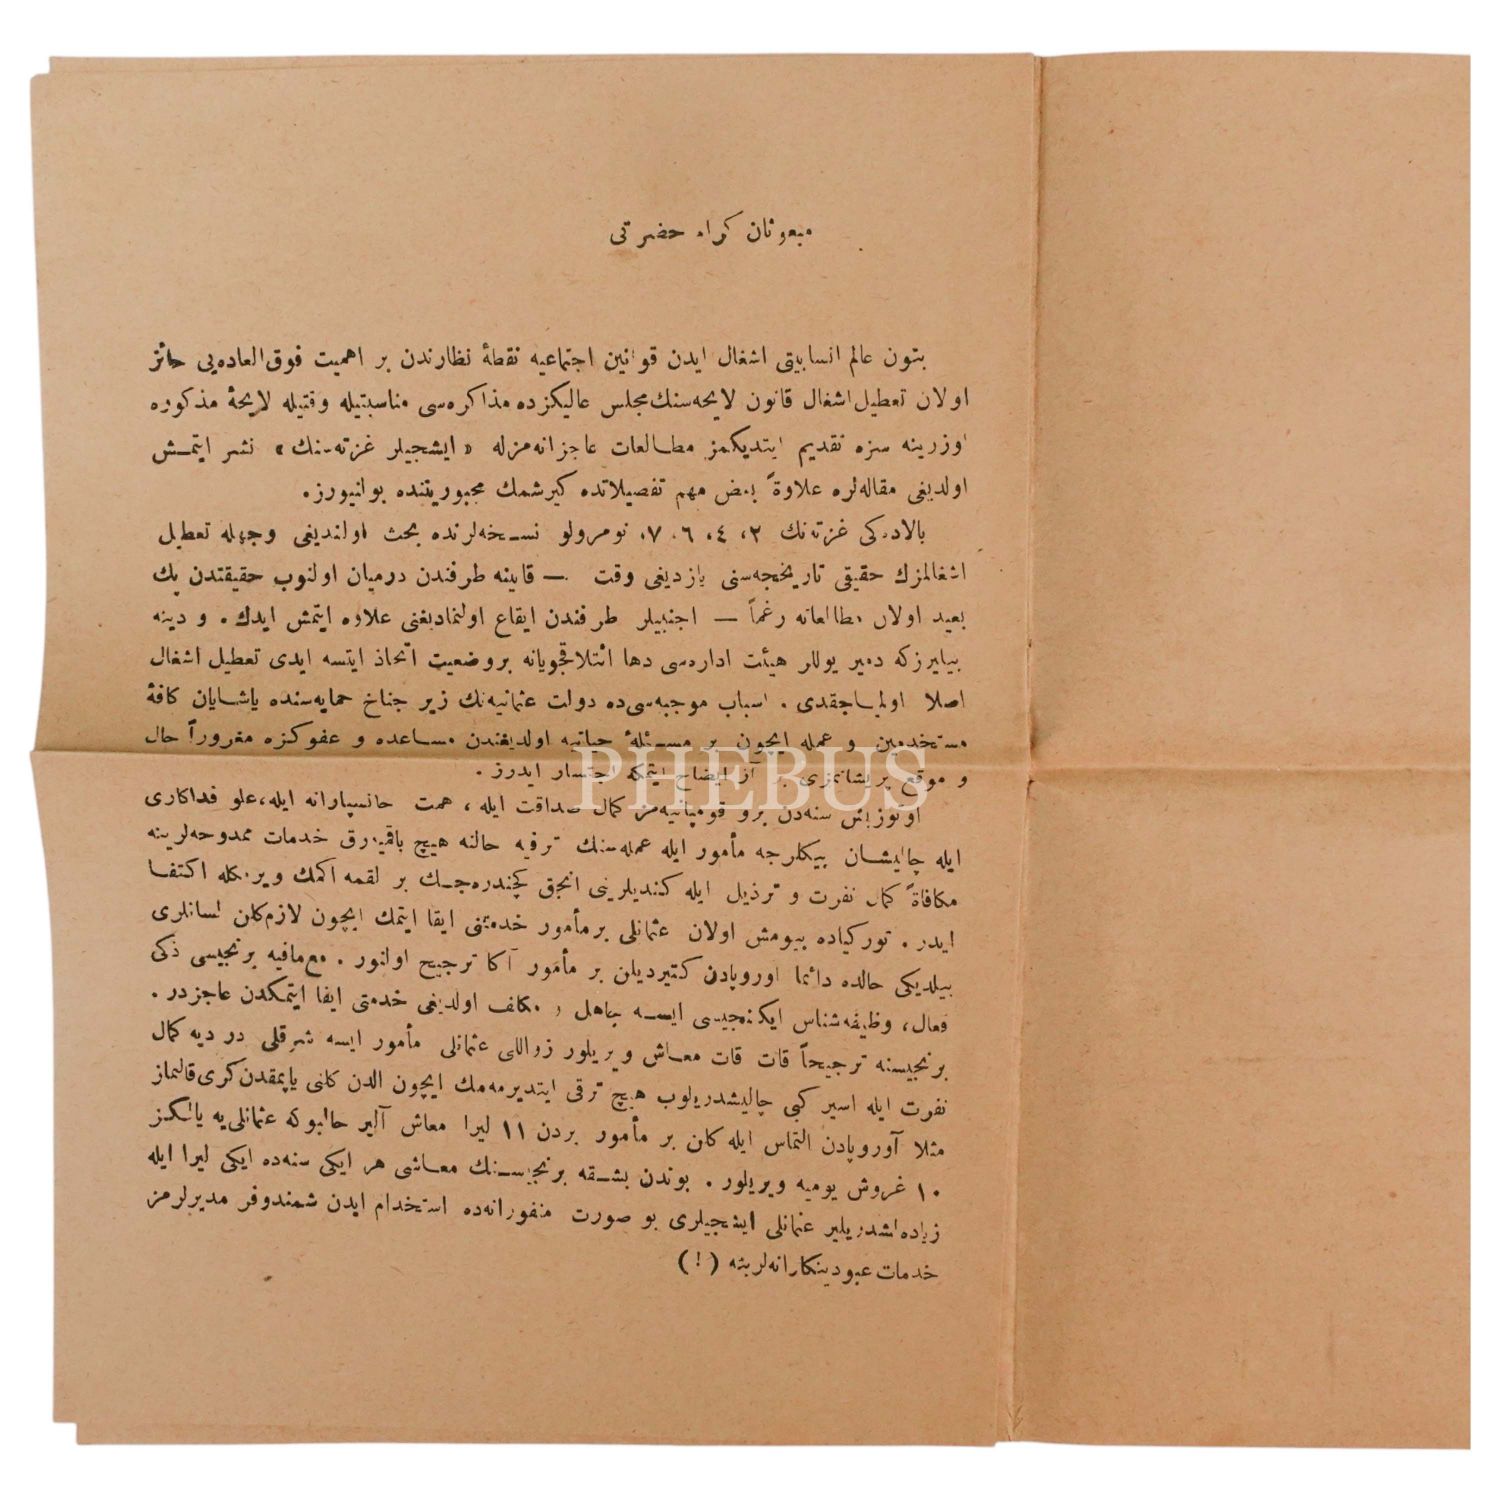 مبعوثان كرام حضرتی
بتون عالم انسانیتی اشغال ایدن قوانین اجتماعیه نقطهٔ نظارندن بر اهمیت فوق‌العاده‌یی حائز
اولان تعطیل اشغال قانون لایحه‌سنك مجلس عالیكزده مذاكره‌سی مناسبتیله وقتیله لایحهٔ مذكوره
اوزرینه سزه تقدیم ایتدیكمز مطالعات عاجزانه‌مزله «ایشجیلر غزته‌سنك» نشر ایتمش
اولدیغی مقاله‌لره علاوةً بعض مهم تفصیلاتده كیرشمك مجبوریتنده بولنیورز.
بالاده‌كی غزته‌نك ٢، ٤، ٦، ٧، نومرولو نسخه‌لرنده بحث اولندیغی وجهله تعطیل
اشغالمزك حقیقی تاریخچه‌سنی یازدیغی وقت — قابینه طرفندن درمیان اولنوب حقیقتدن پك
بعید اولان مطالعاته رغماً — اجنبیلر طرفندن ایقاع اولنمادیغنی علاوه ایتمش ایدك. و دینه
بیلیرزكه دمیر یوللر هیئت اداره‌سی دها ائتلافجویانه بر وضعیت اتخاذ ایتسه ایدی تعطیل اشغال
اصلا اولمیاجقدی. اسباب موجبه‌سی‌ده دولت عثمانیه‌نك زیر جناح حمایه‌سنده یاشایان كافهٔ
مستخدمین و عمله ایچون بر مسئلهٔ حیاتیه اولدیغندن مساعده و عفوكزه مغروراً حال
و موقع پریشانمزی بر آز ایضاح ایتمكه جتسار ایدرز.
اوتوزبش سنه‌دن برو قومپانیه‌مز كمال صداقت ایله، همت جانسپارانه ایله، علو فداكاری
ایله چالیشان بیكلرجه مأمور ایله عمله‌سنك ترفیه حالنه هیچ باقمیه‌رق خدمات ممدوحه‌لرینه
مكافاةً كمال نفرت و ترذیل ایله كندیلرینی انجق كچندره‌جك بر لقمه اكمك ویرمكله اكتفا
ایدر. توركیاده بیومش اولان عثمانلی بر مأمور خدمتنی ایفا ایتمك ایچون لازم‌كلن لسانلری
بیلدیكی حالده دائما اوروپادن كتیردیلن بر مأمور آكا ترجیح اولنور. مع‌مافیه برنجیسی ذكی
فعال، وظیفه‌شناس ایكنجیسی ایسه جاهل و مكلف اولدیغی خدمتی ایفا ایتمكدن عاجزدر.
برنجیسنه ترجیحاً قات قات معاش ویریلور زواللی عثمانلی مأمور ایسه شرقلی در دیه كمال
نفرت ایله اسیر كبی چالیشدریلوب هیچ ترقی ایتدیرمه‌مك ایچون الدن كلنی یاپمقدن كری قالنماز
مثلا آوروپادن التماس ایله كلن بر مأمور بردن ١١ لیرا معاش آلیر حالبوكه عثمانلی‌یه یالكز
١٠ غروش یومیه ویریلور. بوندن بشقه برنجیسنك معاشی هر ایكی سنه‌ده ایكی لیرا ایله
زیاده‌لشدریلیر عثمانلی ایشجیلری بو صورت منفورانه‌ده استخدام ایدن شمندوفر مدیرلرمز
خدمات عبودیتكارانه‌لرینه (!)
PHEBUS